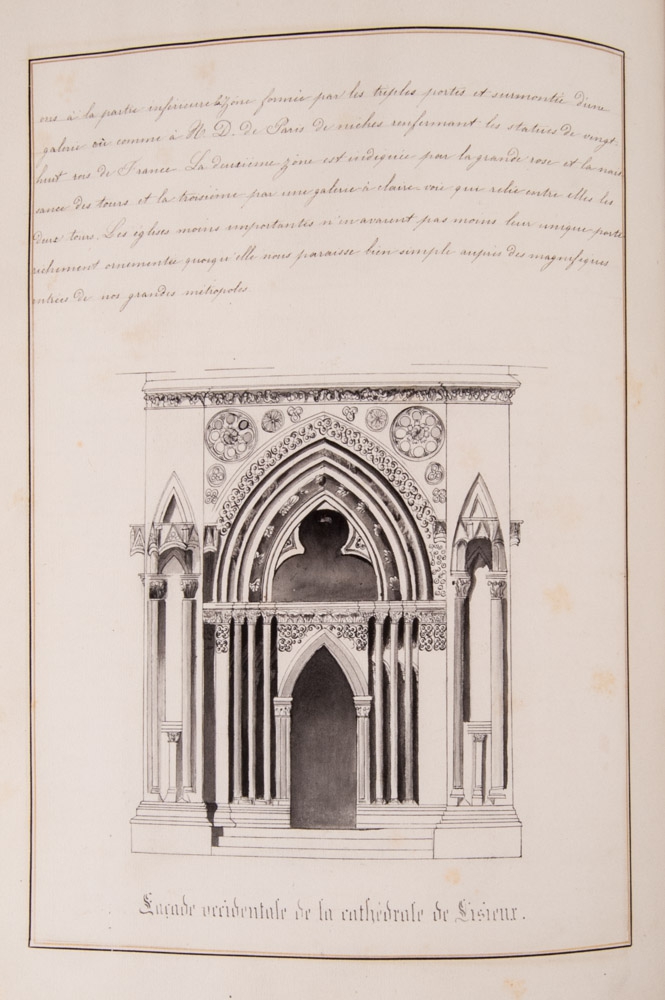 ères à la partie inférieure la zône formée par les triples portes et surmontée d'une
galerie où comme à N. D. de Paris de niches renfermant les statues de vingt-
huit rois de France. La deuxième zône est indiquée par la grande rose et la nais
sance des tours et la troisième par une galerie à claire-voie qui relie entre elles les
deux tours. Les églises moins importantes n'en avaient pas moins leur unique porte
richement ornementée quoiqu'elle nous paraisse bien simple auprès des magnifiques
entrées de nos grandes métropoles
Façade occidentale de la cathédrale de Lisieux.